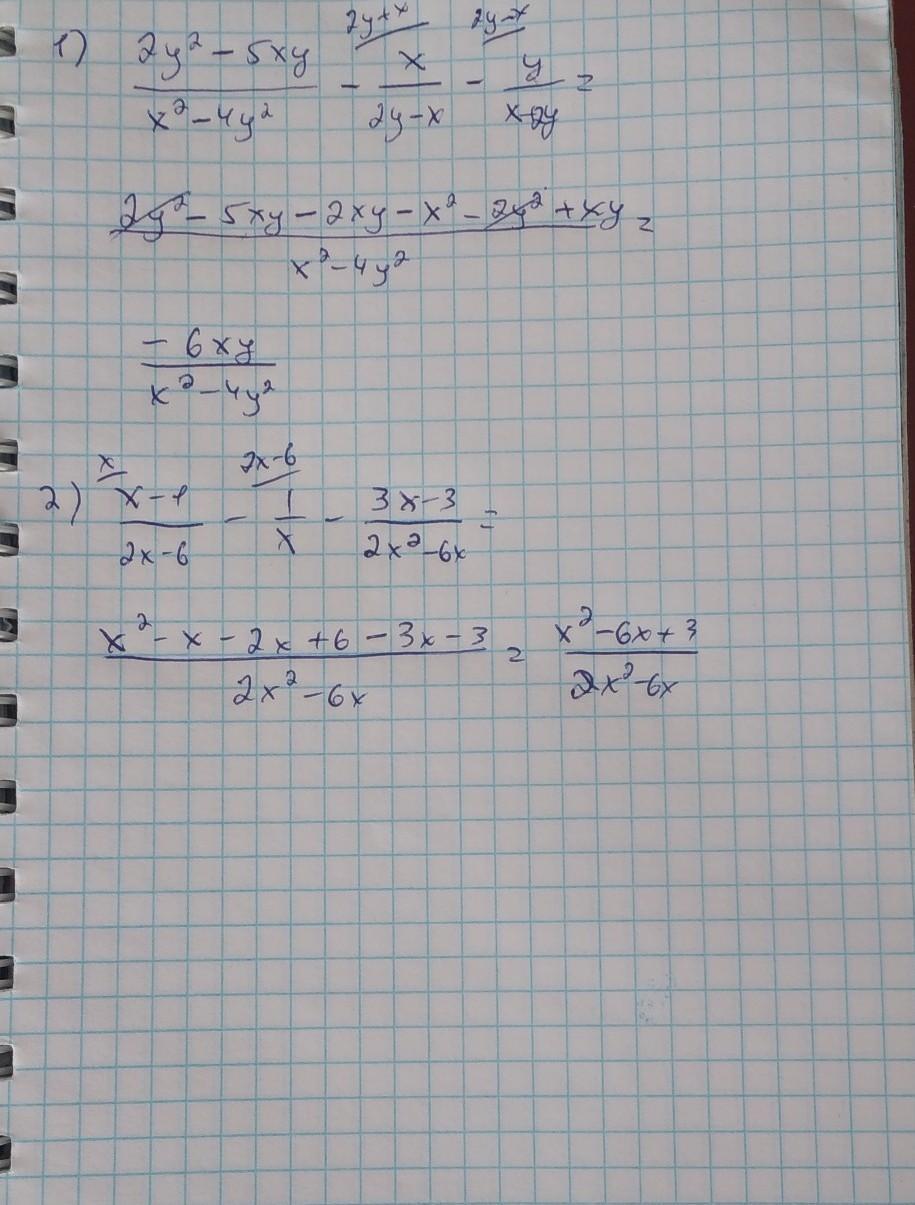 2y+x 2y-x
1) (2y² - 5xy)/(x² - 4y²) - x/(2y-x) - y/(x+2y) =
(2y² - 5xy - 2xy - x² - 2y² + xy)/(x² - 4y²) =
(-6xy)/(x² - 4y²)
x 2x-6
2) (x-1)/(2x-6) - 1/x - (3x-3)/(2x²-6x) =
(x² - x - 2x + 6 - 3x - 3)/(2x² - 6x) = (x² - 6x + 3)/(2x² - 6x)